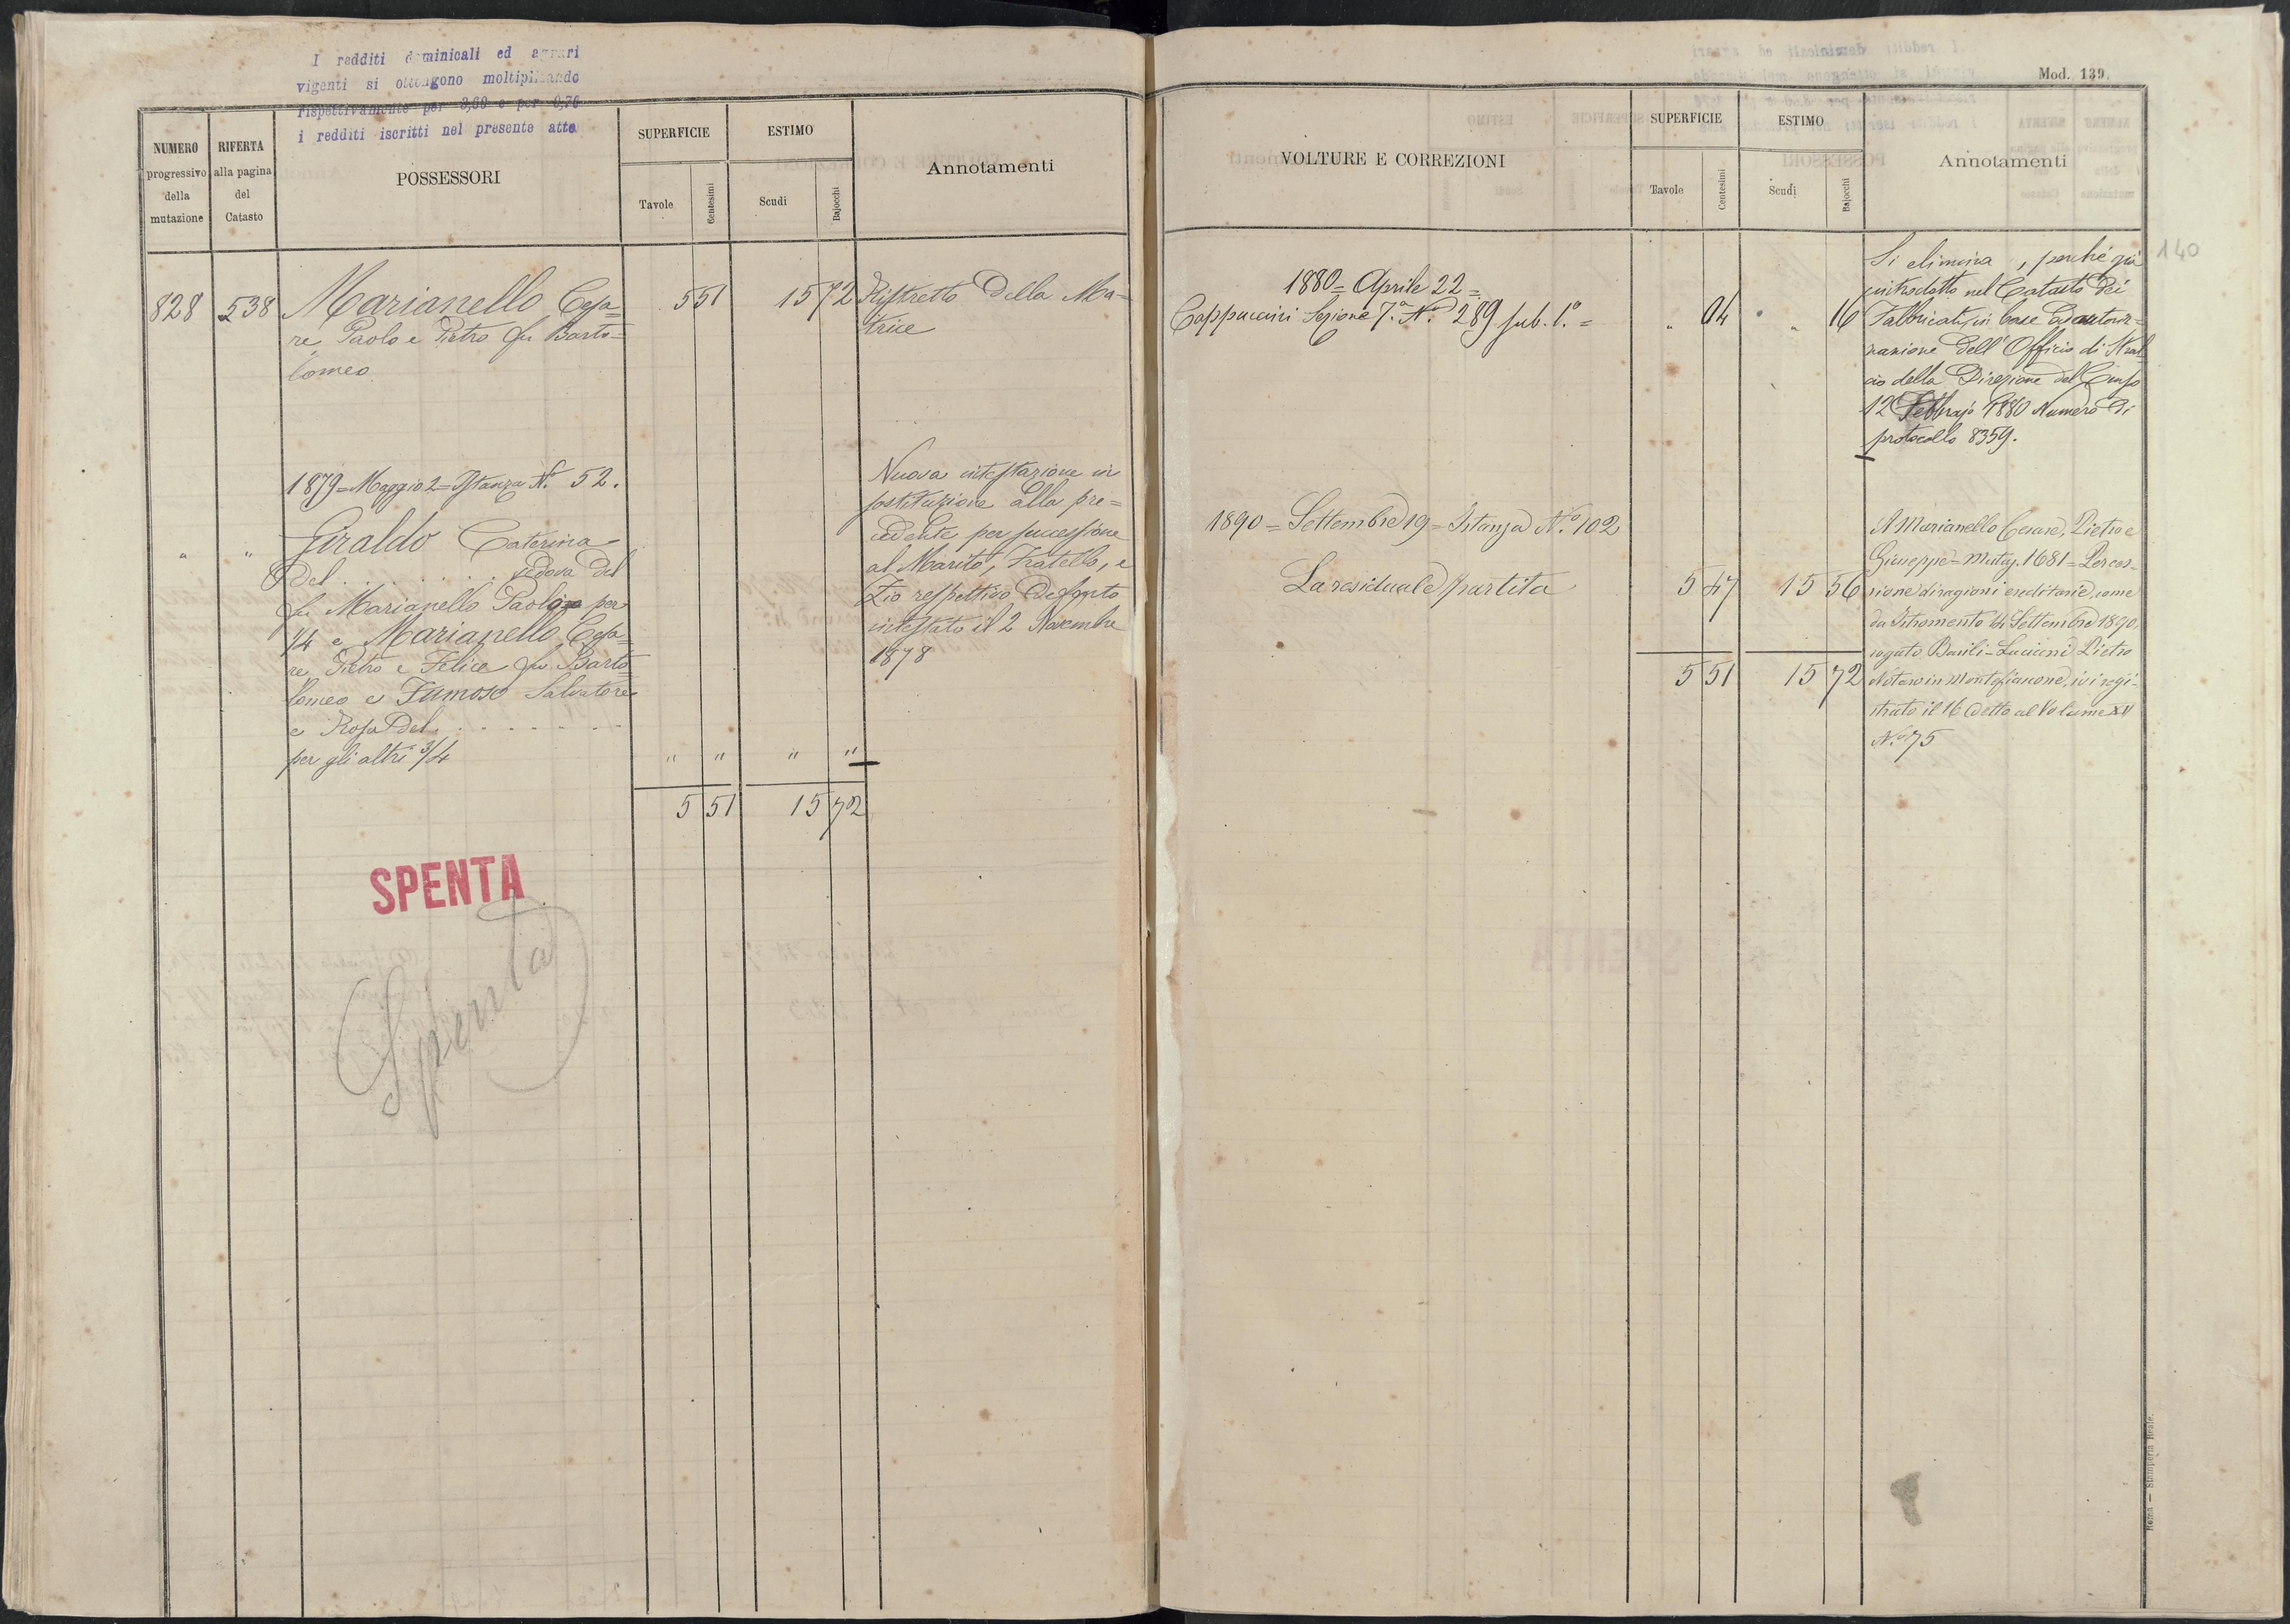 I redditi dominicali ed agrari
vigenti si ottengono moltiplicando
rispettivamente per 3,60 e per 0,76
i redditi iscritti nel presente atto
NUMERO
progressivo
della
mutazione
RIFERTA
alla pagina
del
Catasto
POSSESSORI
SUPERFICIE
Tavole
Centesimi
ESTIMO
Scudi
Bajocchi
Annotamenti
828 538 Marianello Cesa= 5 51 15 72 Ristretto della Ma-
re Paolo e Pietro fu Barto= trice
lomeo
1879=Maggio 2=Istanza N. 52.
" " Giraldo Caterina
Del . . . . . . . vedova del
fu Marianello Paolo per
1/4 e Marianello Cesa=
re Pietro e Felice fu Barto=
lomeo e Fumoso Salvatore
e Rosa Del . . . . . . . .
per gli altri 3/4 " " " "
Nuova intestazione in
sostituzione alla pre=
cedente per successione
al Marito, Fratello, e
Zio respettivo defonto
intestato il 2 Novembre
1878
5 51 15 72
SPENTA
Spenta
Mod. 139.
140
VOLTURE E CORREZIONI
SUPERFICIE
Tavole
Centesimi
ESTIMO
Scudi
Bajocchi
Annotamenti
1880= Aprile 22=
Cappuccini Sezione 7.a N.o 289 sub. 1.o = " 04 " 16
Si elimina, perché già
introdotto nel Catasto dei
Fabbricati, in base ad autoriz=
zazione dell'Officio di Stral
cio della Direzione del Censo
12 Febbrajo 1880 Numero di
protocollo 8359.
1890=Settembre 19=Istanza N.o 102
La residuale partita 5 47 15 56
5 51 15 72
A Marianello Cesare, Pietro e
Giuseppe=Mutaz. 1681=Per ces-
sione di ragioni ereditarie, come
da Istromento 14 Settembre 1890
rogato Basili-Luciani Pietro
Notaro in Montefiascone, ivi regi-
strato il 16 detto al Volume XV
N.o 75
Roma — Stamperia Reale.